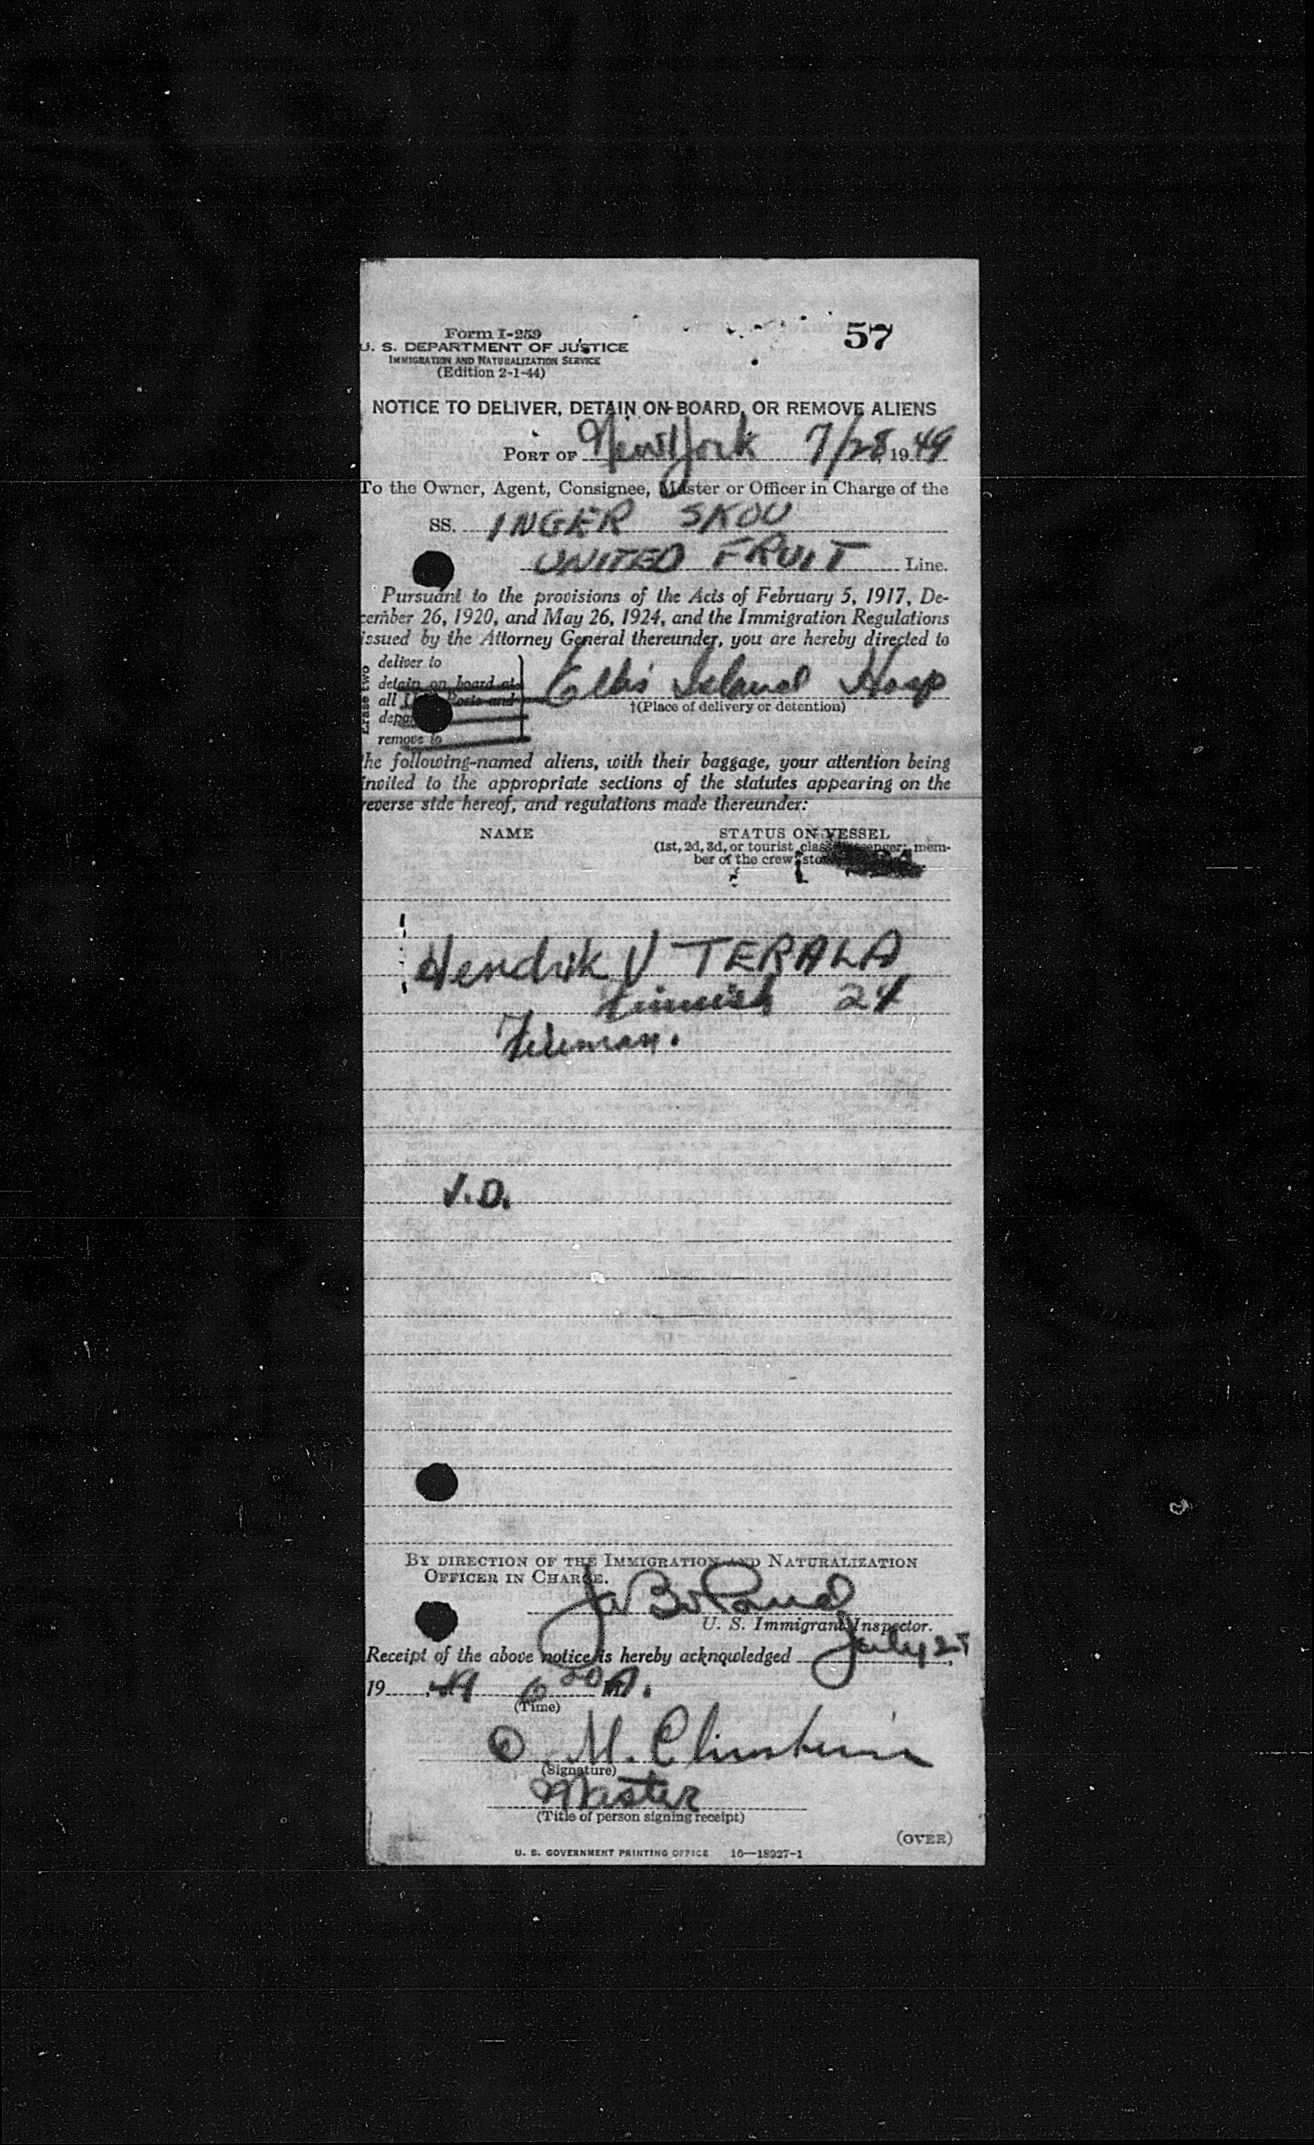 57
Form I-259
U. S. DEPARTMENT OF JUSTICE
IMMIGRATION AND NATURALIZATION SERVICE
(Edition 2-1-44)
NOTICE TO DELIVER, DETAIN ON BOARD, OR REMOVE ALIENS
PORT OF New York 7/28, 1949
To the Owner, Agent, Consignee, Master or Officer in Charge of the
SS. INGER SKOU
UNITED FRUIT Line.
Pursuant to the provisions of the Acts of February 5, 1917, De-
cember 26, 1920, and May 26, 1924, and the Immigration Regulations
issued by the Attorney General thereunder, you are hereby directed to
Erase two
deliver to
detain on board at
all Ports and
remove to
Ellis Island Hosp
†(Place of delivery or detention)
the following-named aliens, with their baggage, your attention being
invited to the appropriate sections of the statutes appearing on the
reverse side hereof, and regulations made thereunder:
NAME STATUS ON VESSEL
(1st, 2d, 3d, or tourist class passenger; mem-
ber of the crew;
Hendrik V TERALA
Finnish 24
Fireman.
V.D.
BY DIRECTION OF THE IMMIGRATION AND NATURALIZATION
OFFICER IN CHARGE.
U. S. Immigrant Inspector.
Receipt of the above notice is hereby acknowledged July 28,
19 49 M.
(Time)
O. M.
(Signature)
Master
(Title of person signing receipt)
(OVER)
U. S. GOVERNMENT PRINTING OFFICE 16—18927-1